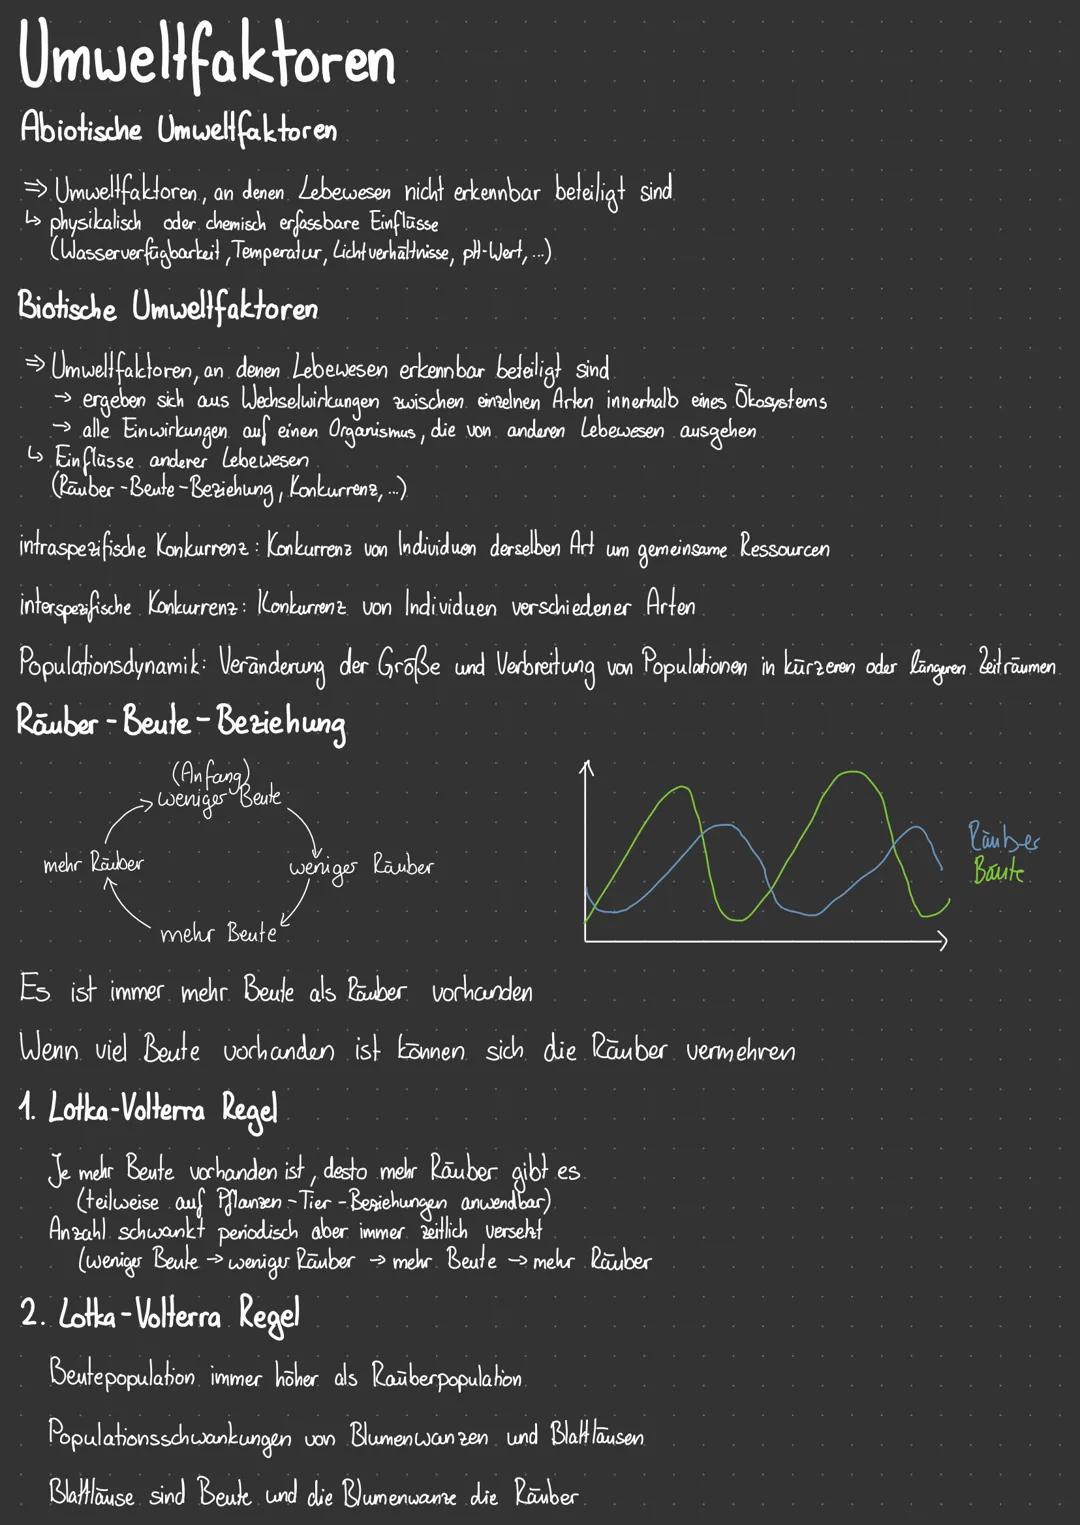 Umweltfaktoren
Abiotische Umweltfaktoren
⇒ Umweltfaktoren, an denen Lebewesen nicht erkennbar beteiligt sind
↳ physikalisch oder chemisch erfassbare Einflüsse
(Wasserverfügbarkeit, Temperatur, Lichtverhältnisse, pH-Wert, ...)
Biotische Umweltfaktoren
⇒ Umweltfaktoren, an denen Lebewesen erkennbar beteiligt sind
→ ergeben sich aus Wechselwirkungen zwischen einzelnen Arten innerhalb eines Ökosystems
→ alle Einwirkungen auf einen Organismus, die von anderen Lebewesen ausgehen
↳ Einflüsse anderer Lebewesen
(Räuber-Beute-Beziehung, Konkurrenz, ...)
intraspezifische Konkurrenz: Konkurrenz von Individuen derselben Art um gemeinsame Ressourcen
interspezifische Konkurrenz: Konkurrenz von Individuen verschiedener Arten
Populationsdynamik: Veränderung der Größe und Verbreitung von Populationen in kürzeren oder längeren Zeiträumen
Räuber-Beute-Beziehung
(Anfang)
weniger Beute
mehr Räuber
weniger Räuber
mehr Beute
Räuber
Bäute
Es ist immer mehr Beute als Räuber vorhanden
Wenn viel Beute vorhanden ist können sich die Räuber vermehren
1. Lotka-Volterra Regel
Je mehr Beute vorhanden ist, desto mehr Räuber gibt es
(teilweise auf Pflanzen-Tier-Beziehungen anwendbar)
Anzahl schwankt periodisch aber immer zeitlich versetzt
(weniger Beute → weniger Räuber → mehr Beute → mehr Räuber
2. Lotka-Volterra Regel
Beutepopulation immer höher als Räuberpopulation
Populationsschwankungen von Blumenwanzen und Blattläusen
Blattläuse sind Beute und die Blumenwanze die Räuber